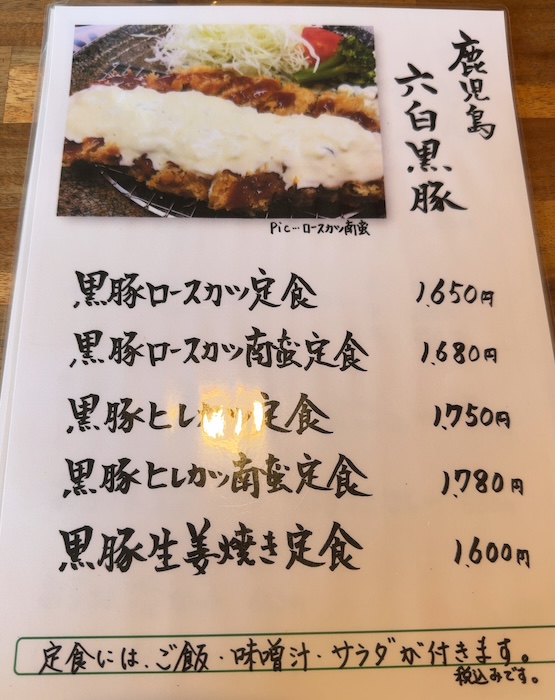 鹿児島
六白黒豚
Pic…ロースカツ南蛮
黒豚ロースカツ定食 1,650円
黒豚ロースカツ南蛮定食 1,680円
黒豚ヒレカツ定食 1,750円
黒豚ヒレカツ南蛮定食 1,780円
黒豚生姜焼き定食 1,600円
定食には、ご飯・味噌汁・サラダが付きます。
税込みです。